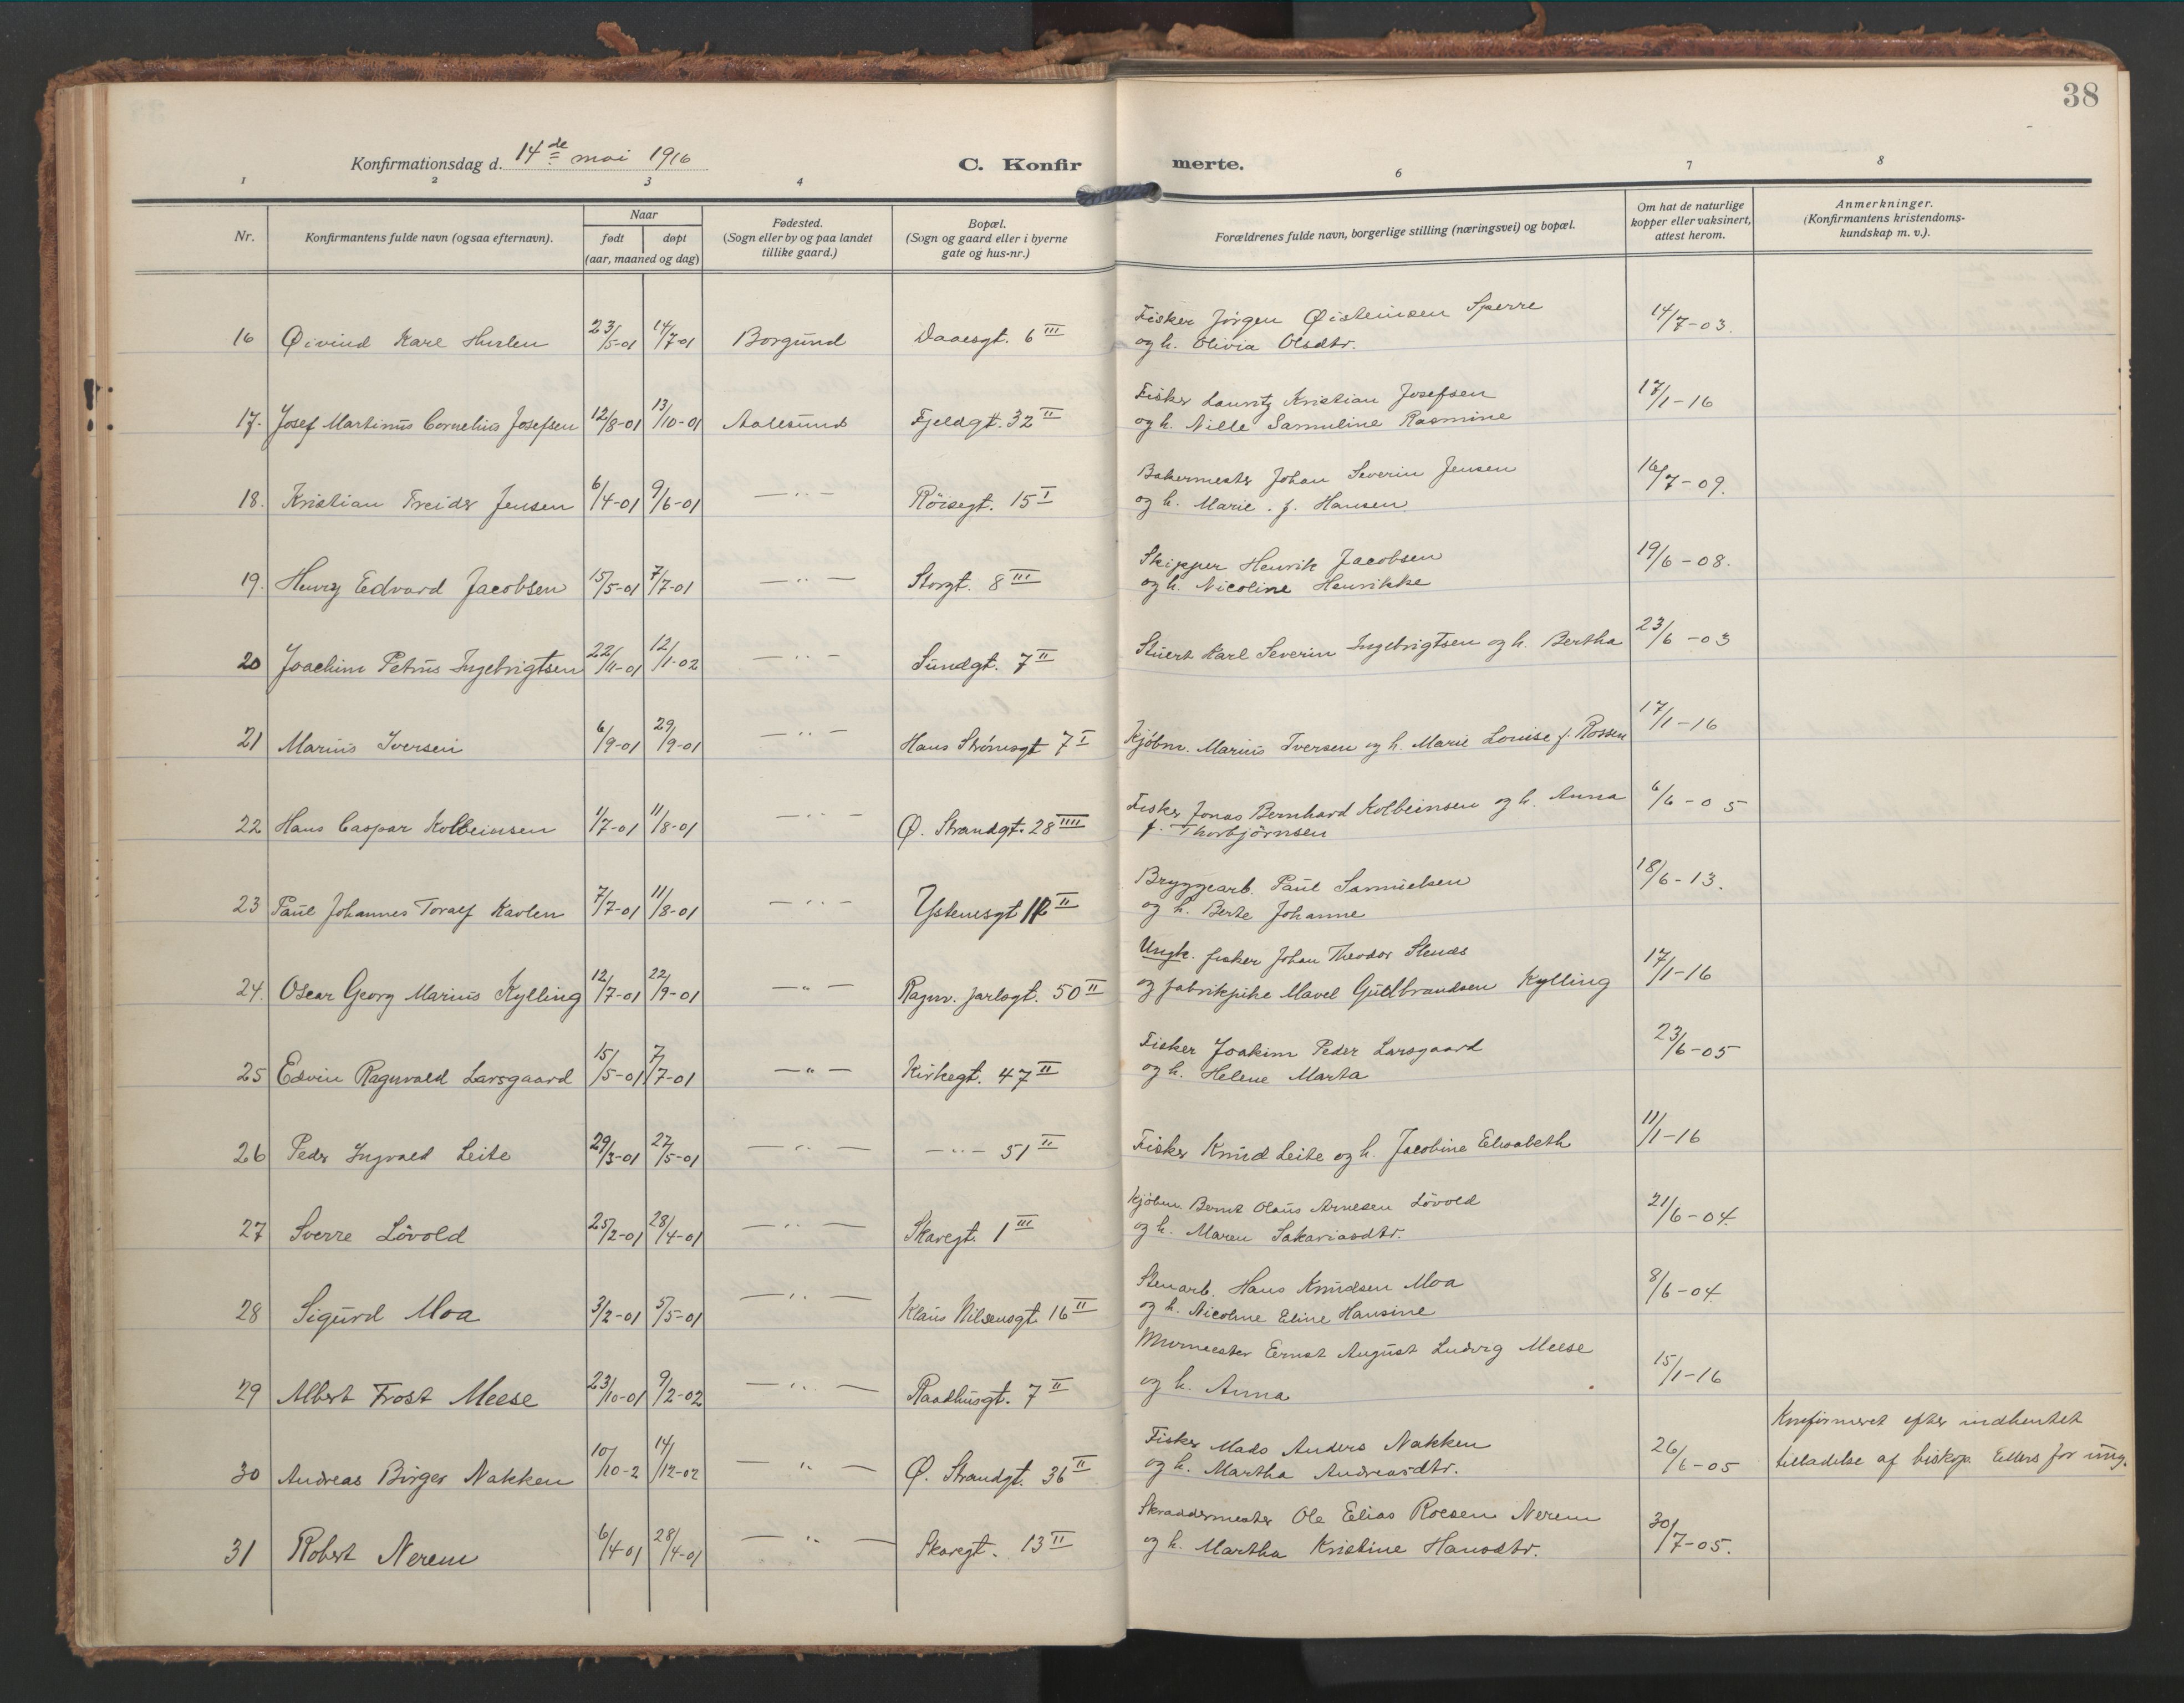 38
Konfirmationsdag d. 14de mai 1916
C. Konfirmerte.
1 2 3 4 6 7 8
Nr.
Konfirmantens fulde navn (ogsaa efternavn).
Naar
født døpt
(aar, maaned og dag)
Fødested.
(Sogn eller by og paa landet
tillike gaard.)
Bopæl.
(Sogn og gaard eller i byerne
gate og hus-nr.)
Forældrenes fulde navn, borgerlige stilling (næringsvei) og bopæl.
Om hat de naturlige
kopper eller vaksinert,
attest herom.
Anmerkninger.
(Konfirmantens kristendoms-
kundskap m. v.).
16 Øivind Karl 23/5-01 14/7-01 Borgund Daaesgt. 6 III Fisker Jörgen Øisteinsen Sperre 14/7-03.
og h. Olivia Olsdtr.
17. Josef Martinus Cornelius Josefsen 12/8-01 13/10-01 Aalesund Fjeldgt. 32 II Fisker Lauritz Kristian Josefsen 17/1-16
og h. Nille Samuline Rasmine
18. Kristian Treider Jensen 6/4-01 9/6-01 —„— Röisegt. 15 I Bakermester Johan Severin Jensen 16/7-09.
og h. Marie f. Hansen
19. Henry Edvard Jacobsen 15/5-01 7/7-01 —„— Storgt. 8 III Skipper Henrik Jacobsen 19/6-08.
og h. Nicoline Henrikke
20 Joachim Petrus Ingebrigtsen 22/11-01 12/1-02 —„— Sundgt. 7 II Stuert Karl Severin Ingebrigtsen og h. Bertha 23/6-03
21 Marius Iversen 6/9-01 29/9-01 —„— Hans Strömsgt 7 I Kjöbm. Marius Iversen og h. Marie Louise f. Rossen 17/1-16
22 Hans Caspar Kolbeinsen 1/7-01 11/8-01 —„— Ø. Strandgt. 28 IIII Fisker Jonas Bernhard Kolbeinsen og h. Anna 6/6-05
f. Thorbjörnsen
23 Paul Johannes Toralf Kavlen 7/7-01 11/8-01 —„— Ystenesgt II Bryggearb. Paul Samuelsen 18/6-13.
og h. Berte Johanne
24. Oscar Georg Marius Kylling 12/7-01 22/9-01 —„— Ragnv. jarlsgt. 50 II Ungk. fisker Johan Theodor 17/1-16
og fabrikpike Mavel Gulbrandsen Kylling
25 Edvin Ragnvald Larsgaard 15/5-01 7/7-01 —„— Kirkegt. 47 II Fisker Joakim Peder Larsgaard 23/6-05
og h. Helene Marta
26 Peder Ingvald Leite 29/3-01 27/5-01 —„— —„— 51 II Fisker Knud Leite og h. Jacobine Elisabeth 11/1-16
27 Sverre Lövold 25/2-01 28/4-01 —„— Skaregt. 1 III Kjöbm. Bernt Olaus Arnesen Lövold 21/6-04.
og h. Maren Sakariasdtr.
28 Sigurd Moa 3/2-01 5/5-01 —„— Klaus Nilsensgt. 16 II Stenarb. Hans Knudsen Moa 8/6-04.
og h. Nicoline Eline Hansine
29 Albert Frost Meese 23/10-01 9/2-02 —„— Raadhusgt. 7 II Murmester Ernst August Ludvig Meese 15/1-16
og h. Anna
30 Andreas Birger Nakken 10/10-2 14/12-02 —„— Ø. Strandgt. 36 II Fisker Mads Anders Nakken 26/6-05 Konfirmeret efter indhentet
og h. Martha Andreasdtr. tilladelse af biskop. Ellers for ung.
31 Robert Nerem 6/4-01 28/4-01 —„— Skaregt. 13 II Skræddermester Ole Elias Roesen Nerem 30/7-05.
og h. Martha Kristine Hansdtr.